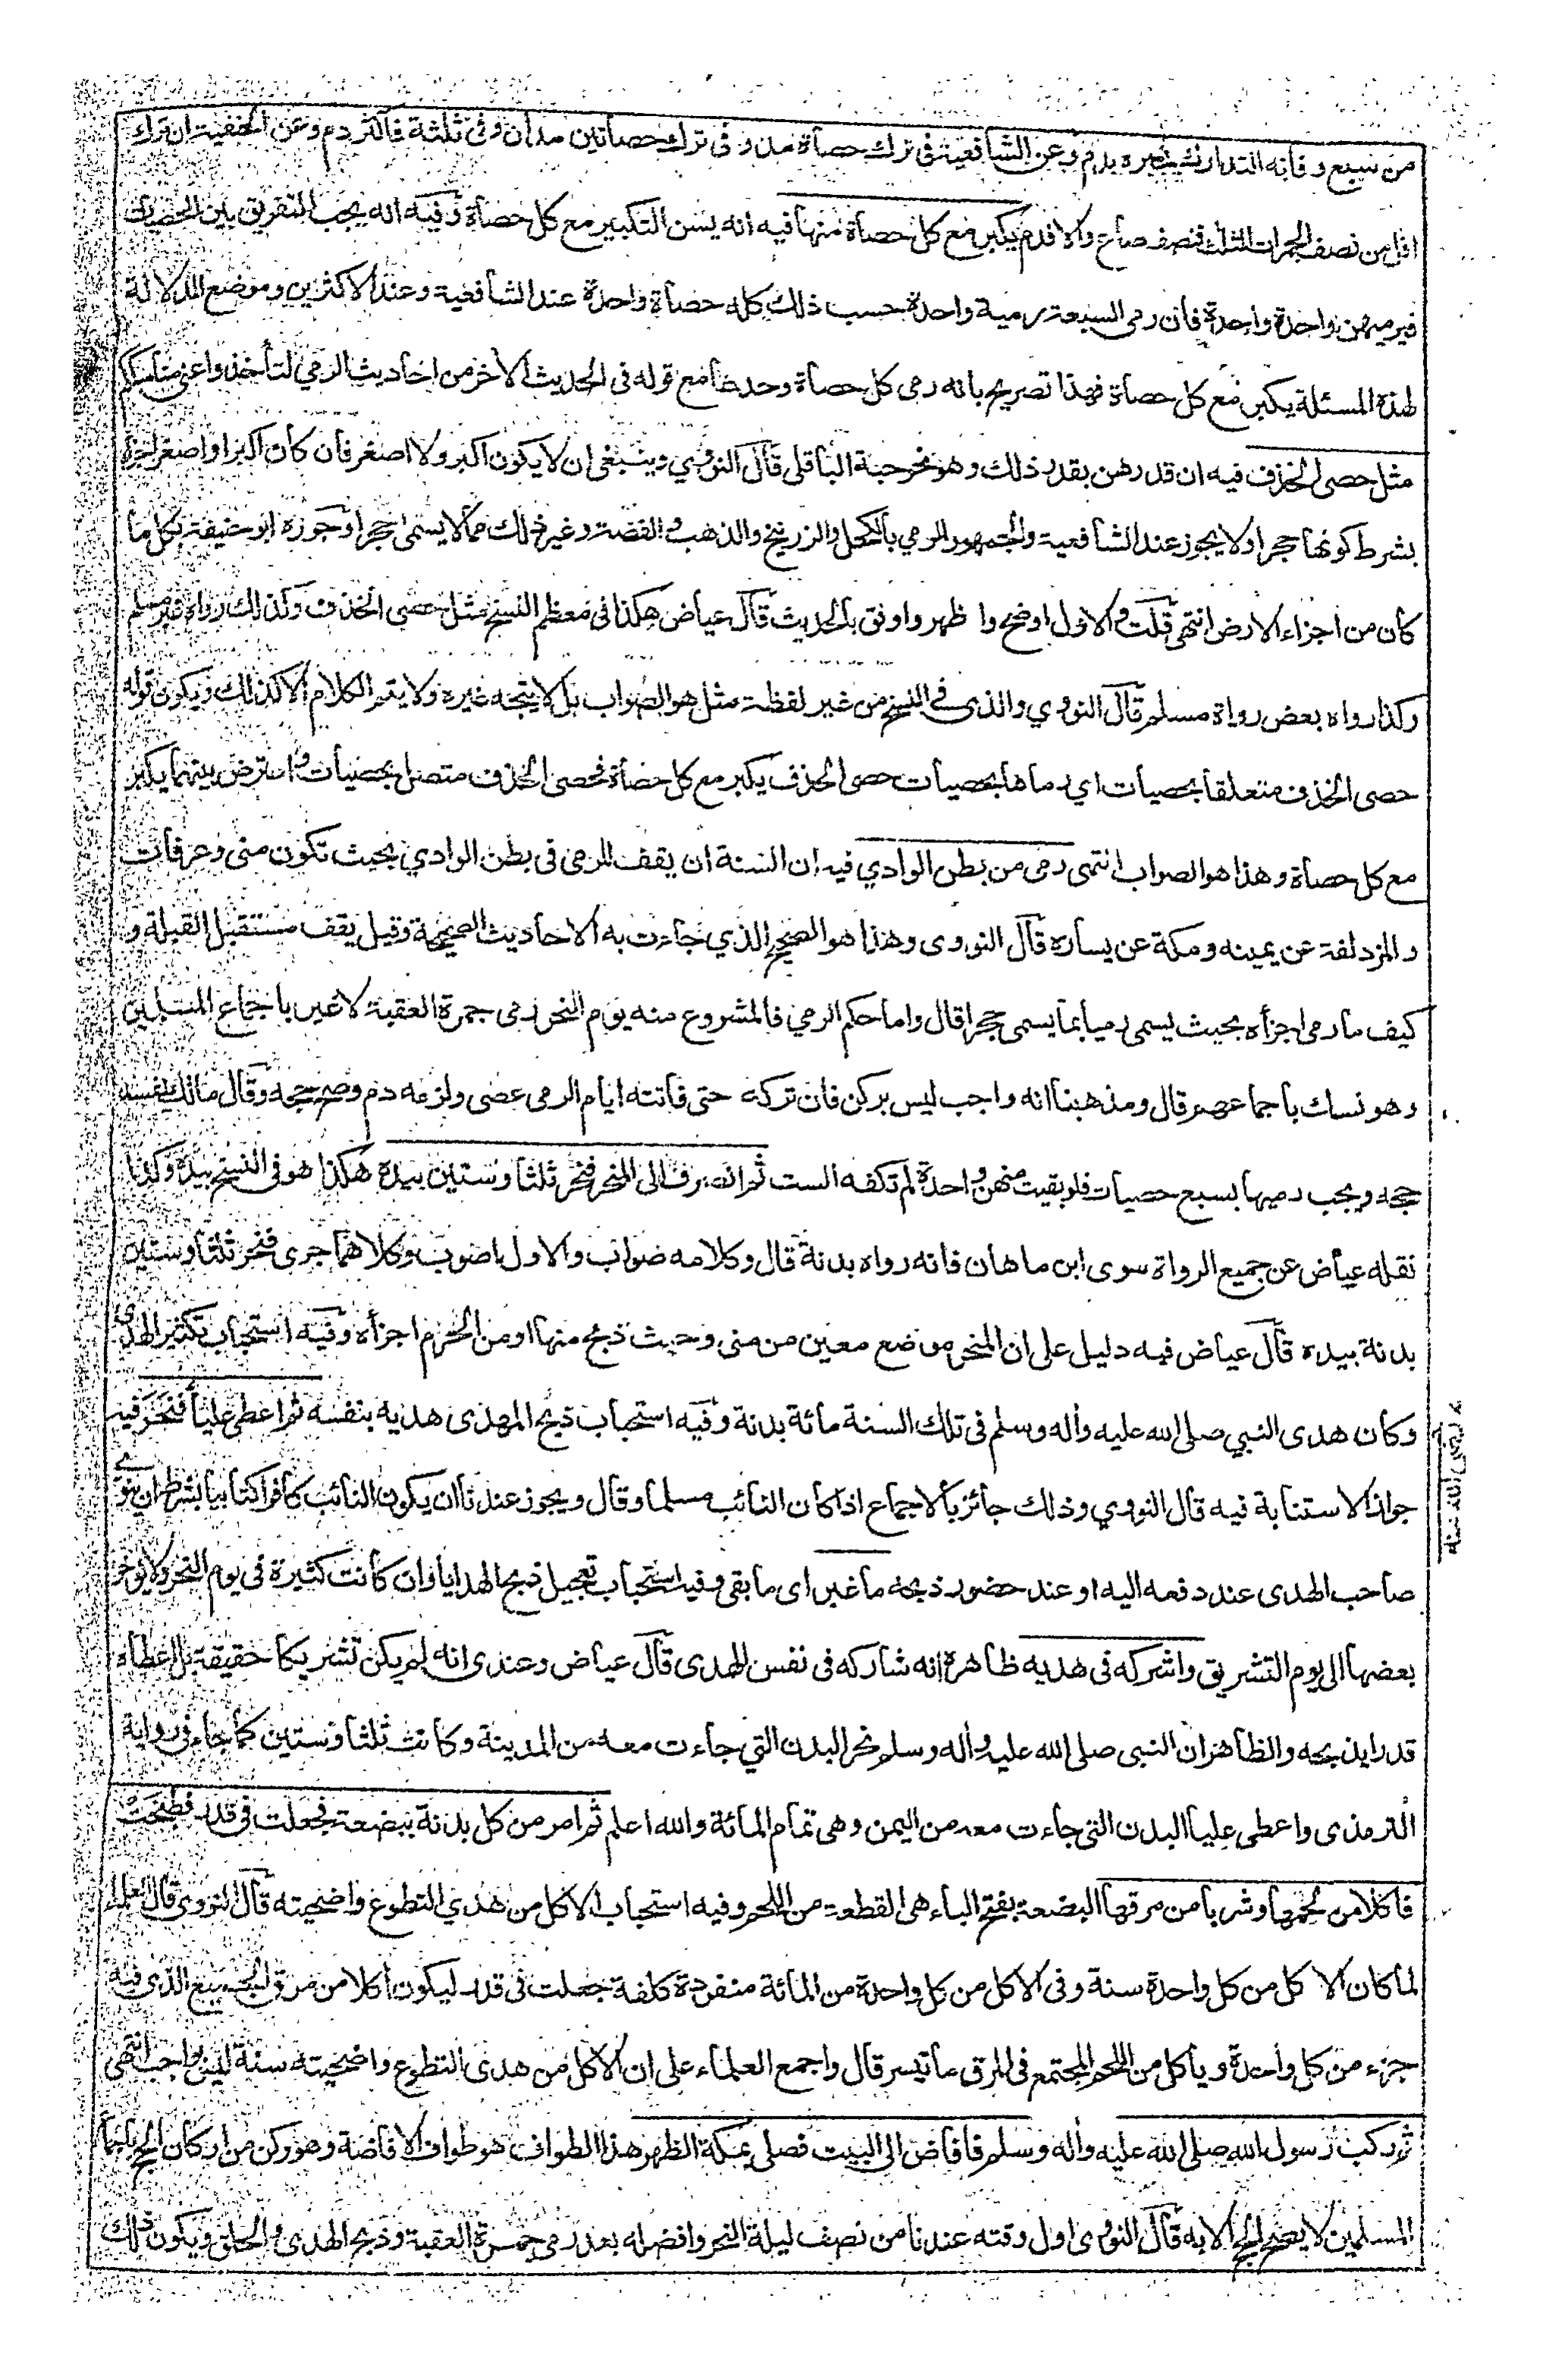 من سبع وفاته التدارك يجبره بدم وعن الشافعية في ترك حصاة مد وفي ترك حصاتين مدان وفي ثلثة فاكثر دم وعن الحنفية ان ترك
اقل من نصف الجمرات الثلث فنصف صاع والا فدم يكبر مع كل حصاة منها فيه انه يسن التكبير مع كل حصاة وفيه انه يجب التفريق بين الحصيات
فيرميهن واحدة واحدة فان رمى السبعة رمية واحدة حسب ذلك كله حصاة واحدة عند الشافعية وعند الاكثرين وموضع الدلالة
لهذه المسئلة يكبر مع كل حصاة فهذا تصريح بانه رمى كل حصاة وحدها مع قوله في الحديث الاخر من احاديث الرمي لتأخذوا عني مناسككم
مثل حصى الخذف فيه ان قدرهن بقدر ذلك وهو نحو حبة الباقلي قال النووي وينبغي ان لا يكون اكبر ولا اصغر فان كان اكبر او اصغر اجزأ
بشرط كونها حجرا ولا يجوز عند الشافعية والجمهور الرمي بالكحل والزرنيخ والذهب والفضة وغير ذلك مما لا يسمى حجرا وجوزه ابو حنيفة بكل ما
كان من اجزاء الارض انتهى قلت والاول اوضح واظهر واوفق بالحديث قال عياض هكذا في معظم النسخ مثل حصى الخذف وكذلك رواه غير مسلم
وكذا رواه بعض رواة مسلم قال النووي والذي في النسخ من غير لفظة مثل هو الصواب بل لا يتجه غيره ولا يتم الكلام الا كذلك ويكون قوله
حصى الخذف متعلقا بحصيات اي رماها بحصيات حصى الخذف يكبر مع كل حصاة فحصى الخذف متصل بحصيات واعترض بينهما يكبر
مع كل حصاة وهذا هو الصواب انتهى رمى من بطن الوادي فيه ان السنة ان يقف للرمي في بطن الوادي بحيث تكون منى وعرفات
والمزدلفة عن يمينه ومكة عن يساره قال النووي وهذا هو الصحيح الذي جاءت به الاحاديث الصحيحة وقيل يقف مستقبل القبلة و
كيف ما رمى اجزأه بحيث يسمى رميا بما يسمى حجرا قال واما حكم الرمي فالمشروع منه يوم النحر رمى جمرة العقبة لا غير باجماع المسلمين
وهو نسك باجماعهم قال ومذهبنا انه واجب ليس بركن فان تركه حتى فاتته ايام الرمي عصى ولزمه دم وصح حجه وقال مالك يفسد
حجه ويجب رميها بسبع حصيات فلو بقيت منهن واحدة لم تكفه الست ثم انصرف الى المنحر فنحر ثلثا وستين بيده هكذا هو في النسخ بيده وكذا
نقله عياض عن جميع الرواة سوى ابن ماهان فانه رواه بدنة قال وكلامه صواب والاول اصوب وكلاهما جرى فنحر ثلثا وستين
بدنة بيده قال عياض فيه دليل على ان المنحر موضع معين من منى وحيث ذبح منها او من الحرم اجزأه وفيه استحباب تكثير الهدى
وكان هدى النبي صلى الله عليه وأله وسلم في تلك السنة مائة بدنة وفيه استحباب ذبح المهدي هديه بنفسه ثم اعطى عليا فنحر فيه
جواز الاستنابة فيه قال النووي وذلك جائز بالاجماع اذا كان النائب مسلما وقال ويجوز عندنا ان يكون النائب كافرا كتابيا بشرط ان ينوي
صاحب الهدى عند دفعه اليه او عند حضور ذبحه ما غبر اى ما بقى وفيه استحباب تعجيل ذبح الهدايا وان كانت كثيرة في يوم النحر ولا يؤخر
بعضها الى يوم التشريق واشركه في هديه ظاهره انه شاركه في نفس الهدى قال عياض وعندى انه لم يكن تشريكا حقيقة بل اعطاه
قدرا يذبحه والظاهر ان النبي صلى الله عليه وأله وسلم نحر البدن التي جاءت معه من المدينة وكانت ثلثا وستين كما جاء في رواية
الترمذي واعطى عليا البدن التي جاءت معه من اليمن وهي تمام المائة والله اعلم ثم امر من كل بدنة ببضعة فجعلت في قدر فطبخت
فاكلا من لحمها وشربا من مرقها البضعة بفتح الباء هي القطعة من اللحم وفيه استحباب الاكل من هدي التطوع واضحيته قال النووي قال العلماء
لما كان الاكل من كل واحدة سنة وفي الاكل من كل واحدة من المائة منفردة كلفة جعلت في قدر ليكون أكلا من مرق الجميع الذي فيه
جزء من كل واحدة ويأكل من اللحم المجتمع في المرق ما تيسر قال واجمع العلماء على ان الاكل من هدى التطوع واضحيته سنة ليس بواجب انتهى
ثم ركب رسول الله صلى الله عليه وأله وسلم فافاض الى البيت فصلى بمكة الظهر هذا الطواف هو طواف الافاضة وهو ركن من اركان الحج باجماع
المسلمين لا يصح الحج الا به قال النووي اول وقته عندنا من نصف ليلة النحر وافضله بعد رمي جمرة العقبة وذبح الهدى والحلق ويكون ذلك